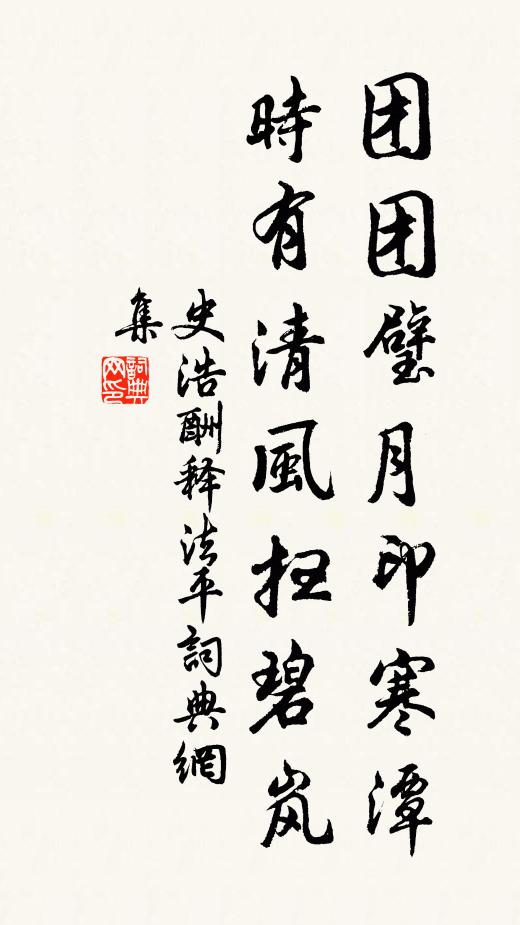 团团璧月印寒潭
時有清風扫碧岚
史浩酬释法平詞典網
集
詞典
网印